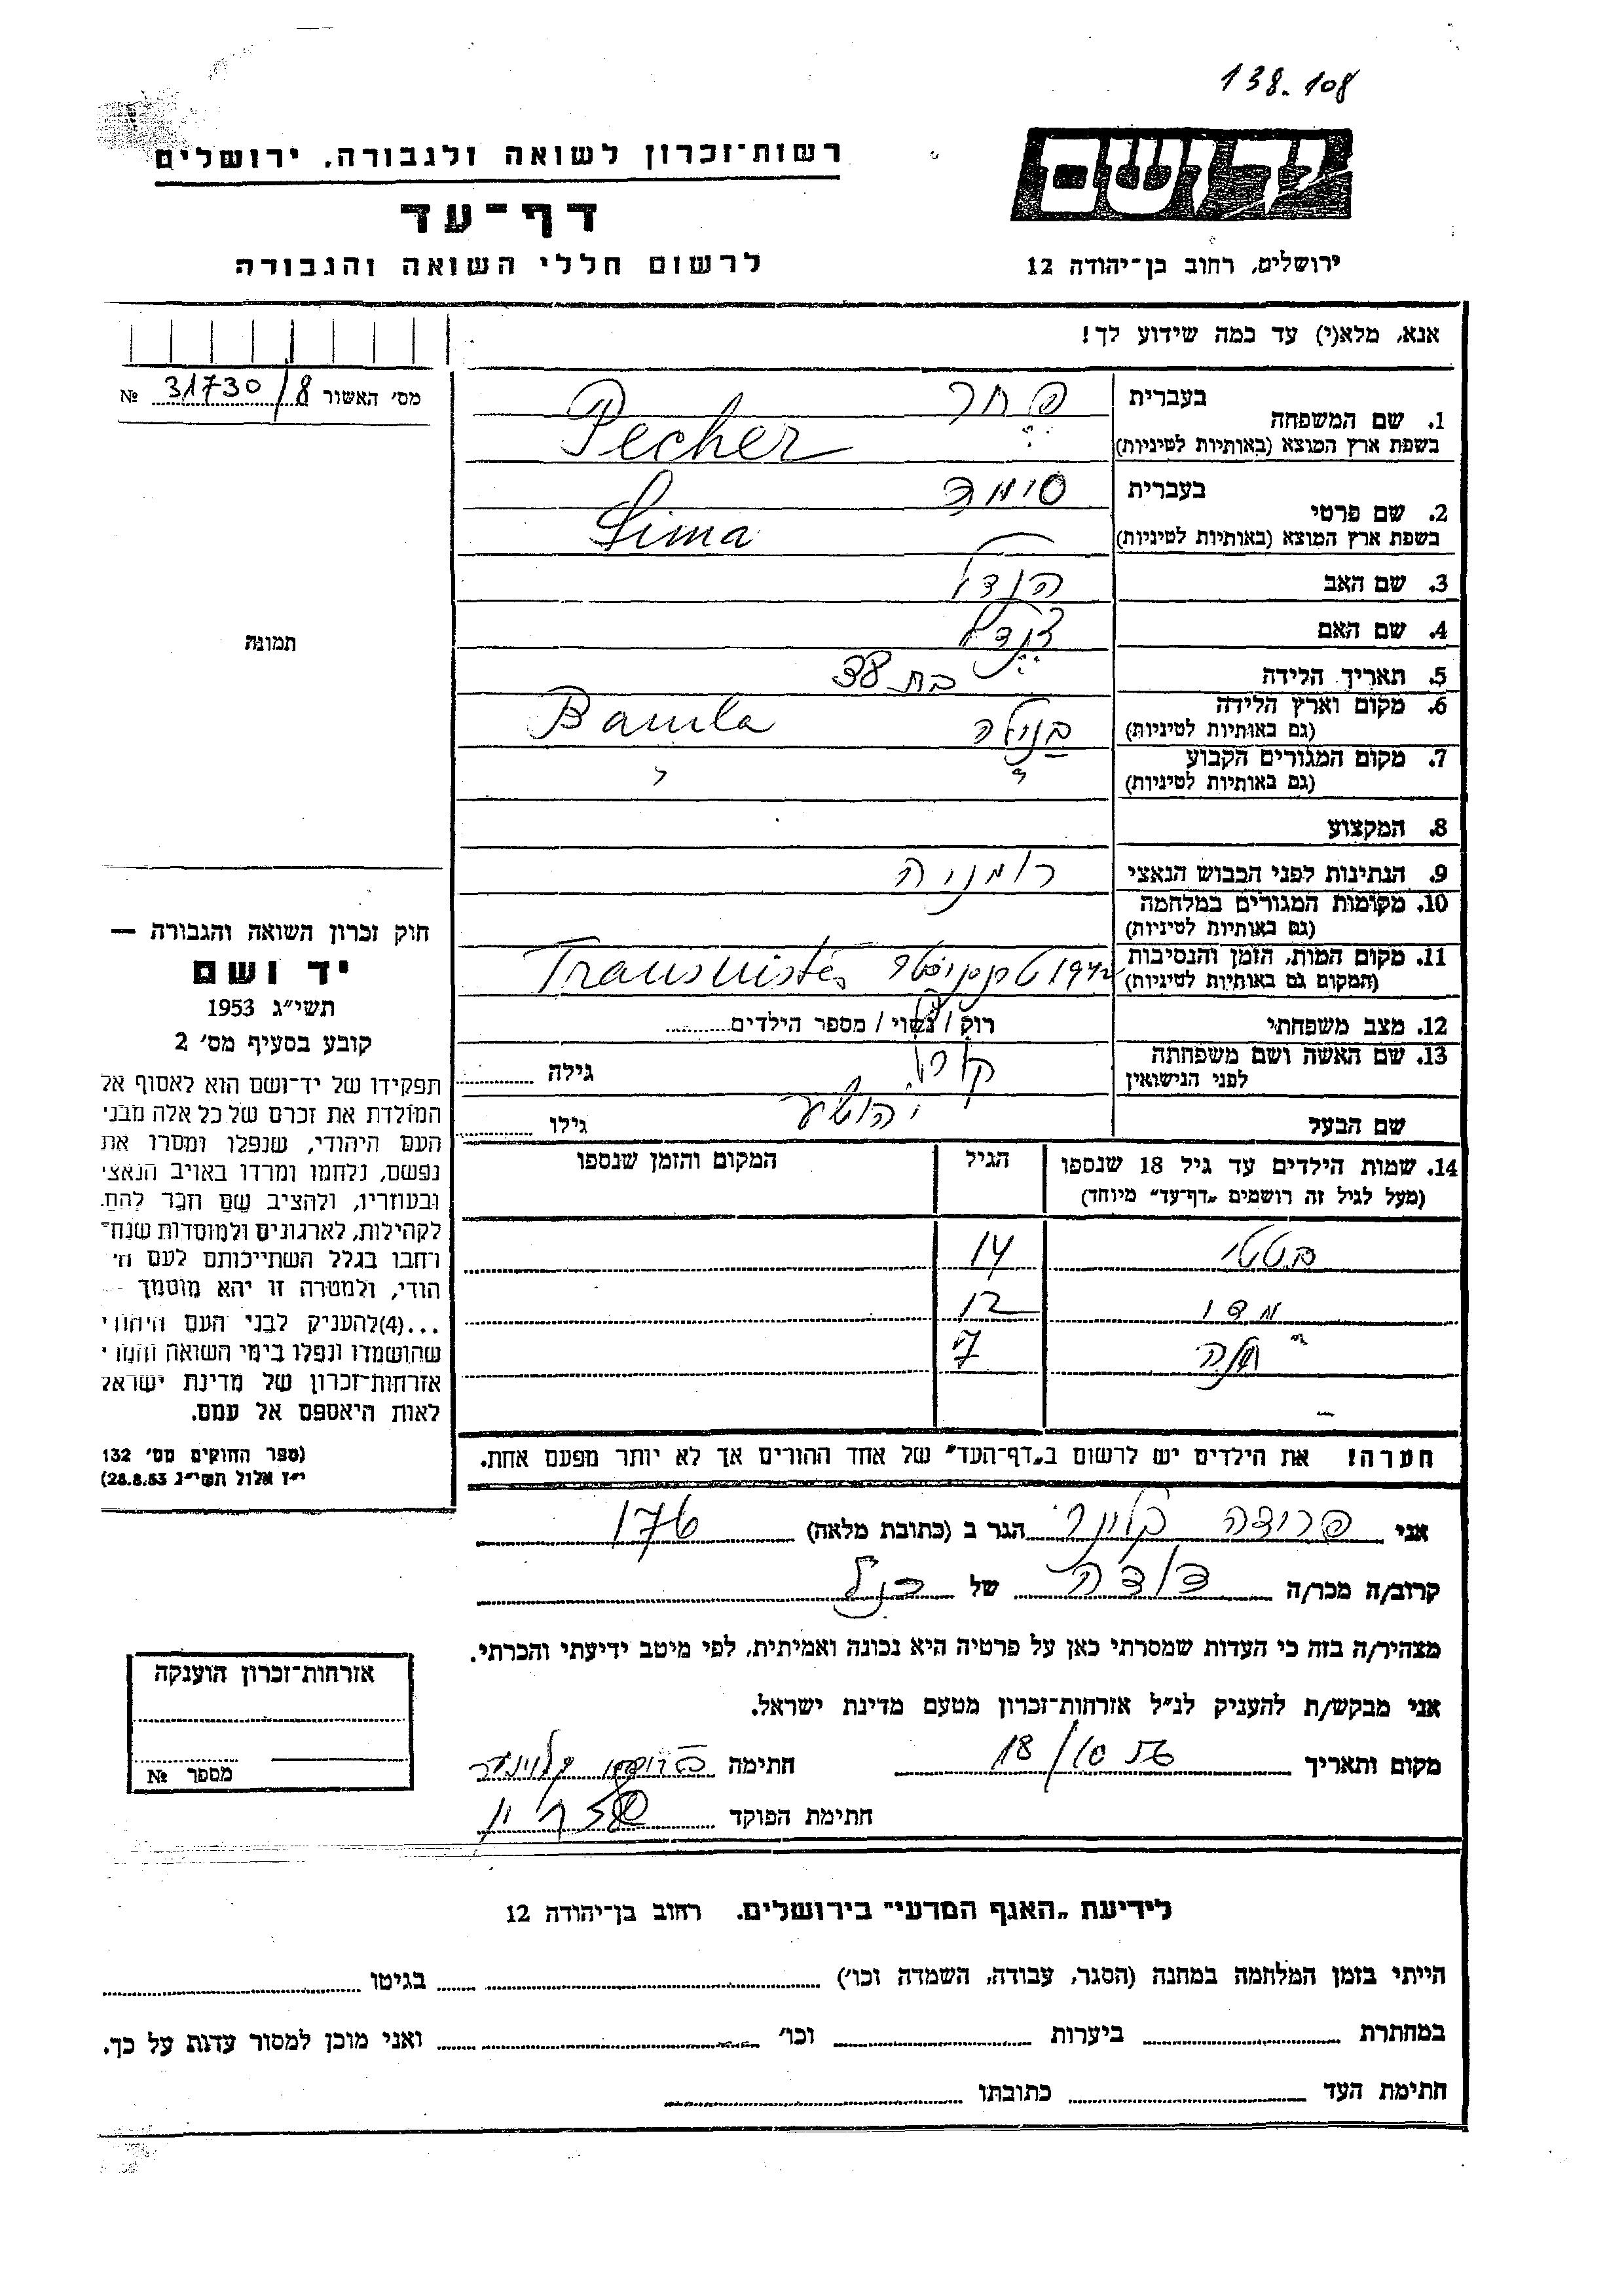 138.108
ידושם
רשות־זכרון לשואה ולגבורה, ירושלים
דף־עד
לרשום חללי השואה והגבורה
ירושלים, רחוב בן־יהודה 12
אנא, מלא(י) עד כמה שידוע לך!
מס׳ האשור 31730/8 №
1. שם המשפחה
בעברית פחר
בשפת ארץ המוצא (באותיות לטיניות) Pecher
2. שם פרטי
בעברית סימה
בשפת ארץ המוצא (באותיות לטיניות) Sima
3. שם האב
4. שם האם
5. תאריך הלידה בת 38
6. מקום וארץ הלידה בנילה Banila
(גם באותיות לטיניות)
7. מקום המגורים הקבוע
(גם באותיות לטיניות)
8. המקצוע
9. הנתינות לפני הכבוש הנאצי רומניה
10. מקומות המגורים במלחמה
(גם באותיות לטיניות)
11. מקום המות, הזמן והנסיבות 1942
(המקום גם באותיות לטיניות)
12. מצב משפחתי רוק / נשוי / מספר הילדים
13. שם האשה ושם משפחתה
לפני הנישואין גילה
שם הבעל יהושע גילו
14. שמות הילדים עד גיל 18 שנספו הגיל המקום והזמן שנספו
(מעל לגיל זה רושמים „דף־עד" מיוחד)
14
12
7
הערה! את הילדים יש לרשום ב„דף־העד" של אחד ההורים אך לא יותר מפעם אחת.
תמונה
חוק זכרון השואה והגבורה —
יד ושם
תשי״ג 1953
קובע בסעיף מס׳ 2
תפקידו של יד־ושם הוא לאסוף אל
המולדת את זכרם של כל אלה מבני
העם היהודי, שנפלו ומסרו את
נפשם, נלחמו ומרדו באויב הנאצי
ובעוזריו, ולהציב שם וזכר להם,
לקהילות, לארגונים ולמוסדות שנח־
רחבו בגלל השתייכותם לעם הי
הודי, ולמטרה זו יהא מוסמך —
...(4)להעניק לבני העם היהודי
שהושמדו ונפלו בימי השואה והמרי
אזרחות־זכרון של מדינת ישראל
לאות היאספם אל עמם.
(ספר החוקים מס׳ 132
י״ז אלול תשי״ג 28.8.53)
אני הגר ב (כתובת מלאה)
קרוב/ה מכר/ה דודה של
מצהיר/ה בזה כי העדות שמסרתי כאן על פרטיה היא נכונה ואמיתית, לפי מיטב ידיעתי והכרתי.
אני מבקש/ת להעניק לנ״ל אזרחות־זכרון מטעם מדינת ישראל.
מקום ותאריך חתימה
חתימת הפוקד
אזרחות־זכרון הוענקה
מספר №
לידיעת „האגף המדעי" בירושלים, רחוב בן־יהודה 12
הייתי בזמן המלחמה במחנה (הסגר, עבודה, השמדה וכו׳) בגיטו
במחתרת ביערות וכו׳ ואני מוכן למסור עדות על כך.
חתימת העד כתובתו